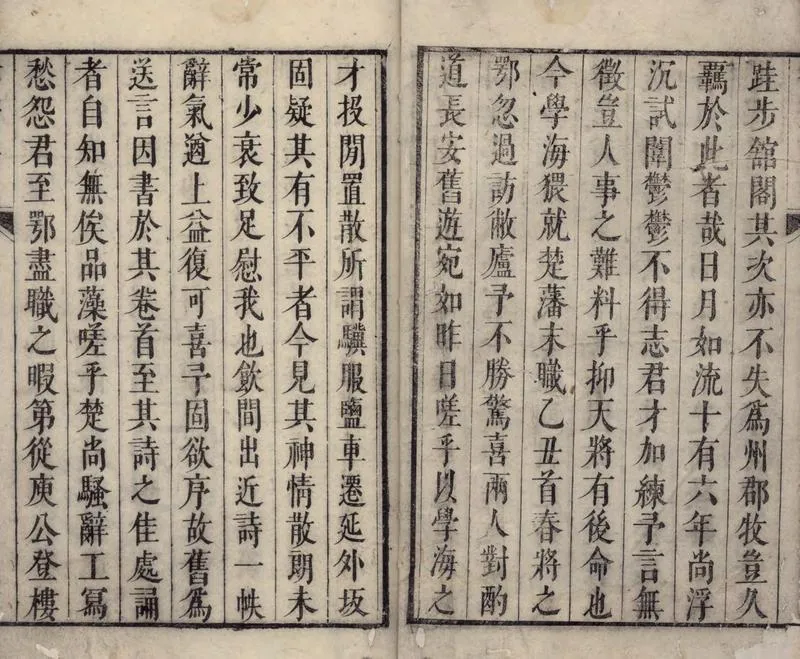 跬步舘閣其次亦不失爲州郡牧豈久
羈於此者哉日月如流十有六年尚浮
沉試闈鬱鬱不得志君才加練予言無
徵豈人事之難料乎抑天將有後命也
今學海猥就楚藩末職乙丑首春將之
鄂忽過訪敝廬予不勝驚喜兩人對酌
道長安舊遊宛如昨日嗟乎以學海之
才投閒置散所謂驥服鹽車遷延外坂
固疑其有不平者今見其神情散朗未
常少衰致足慰我也飲間出近詩一帙
辭氣遒上益復可喜予固欲序故舊爲
送言因書於其卷首至其詩之佳處誦
者自知無俟品藻嗟乎楚尚騷辭工寫
愁怨君至鄂盡職之暇第從庾公登樓